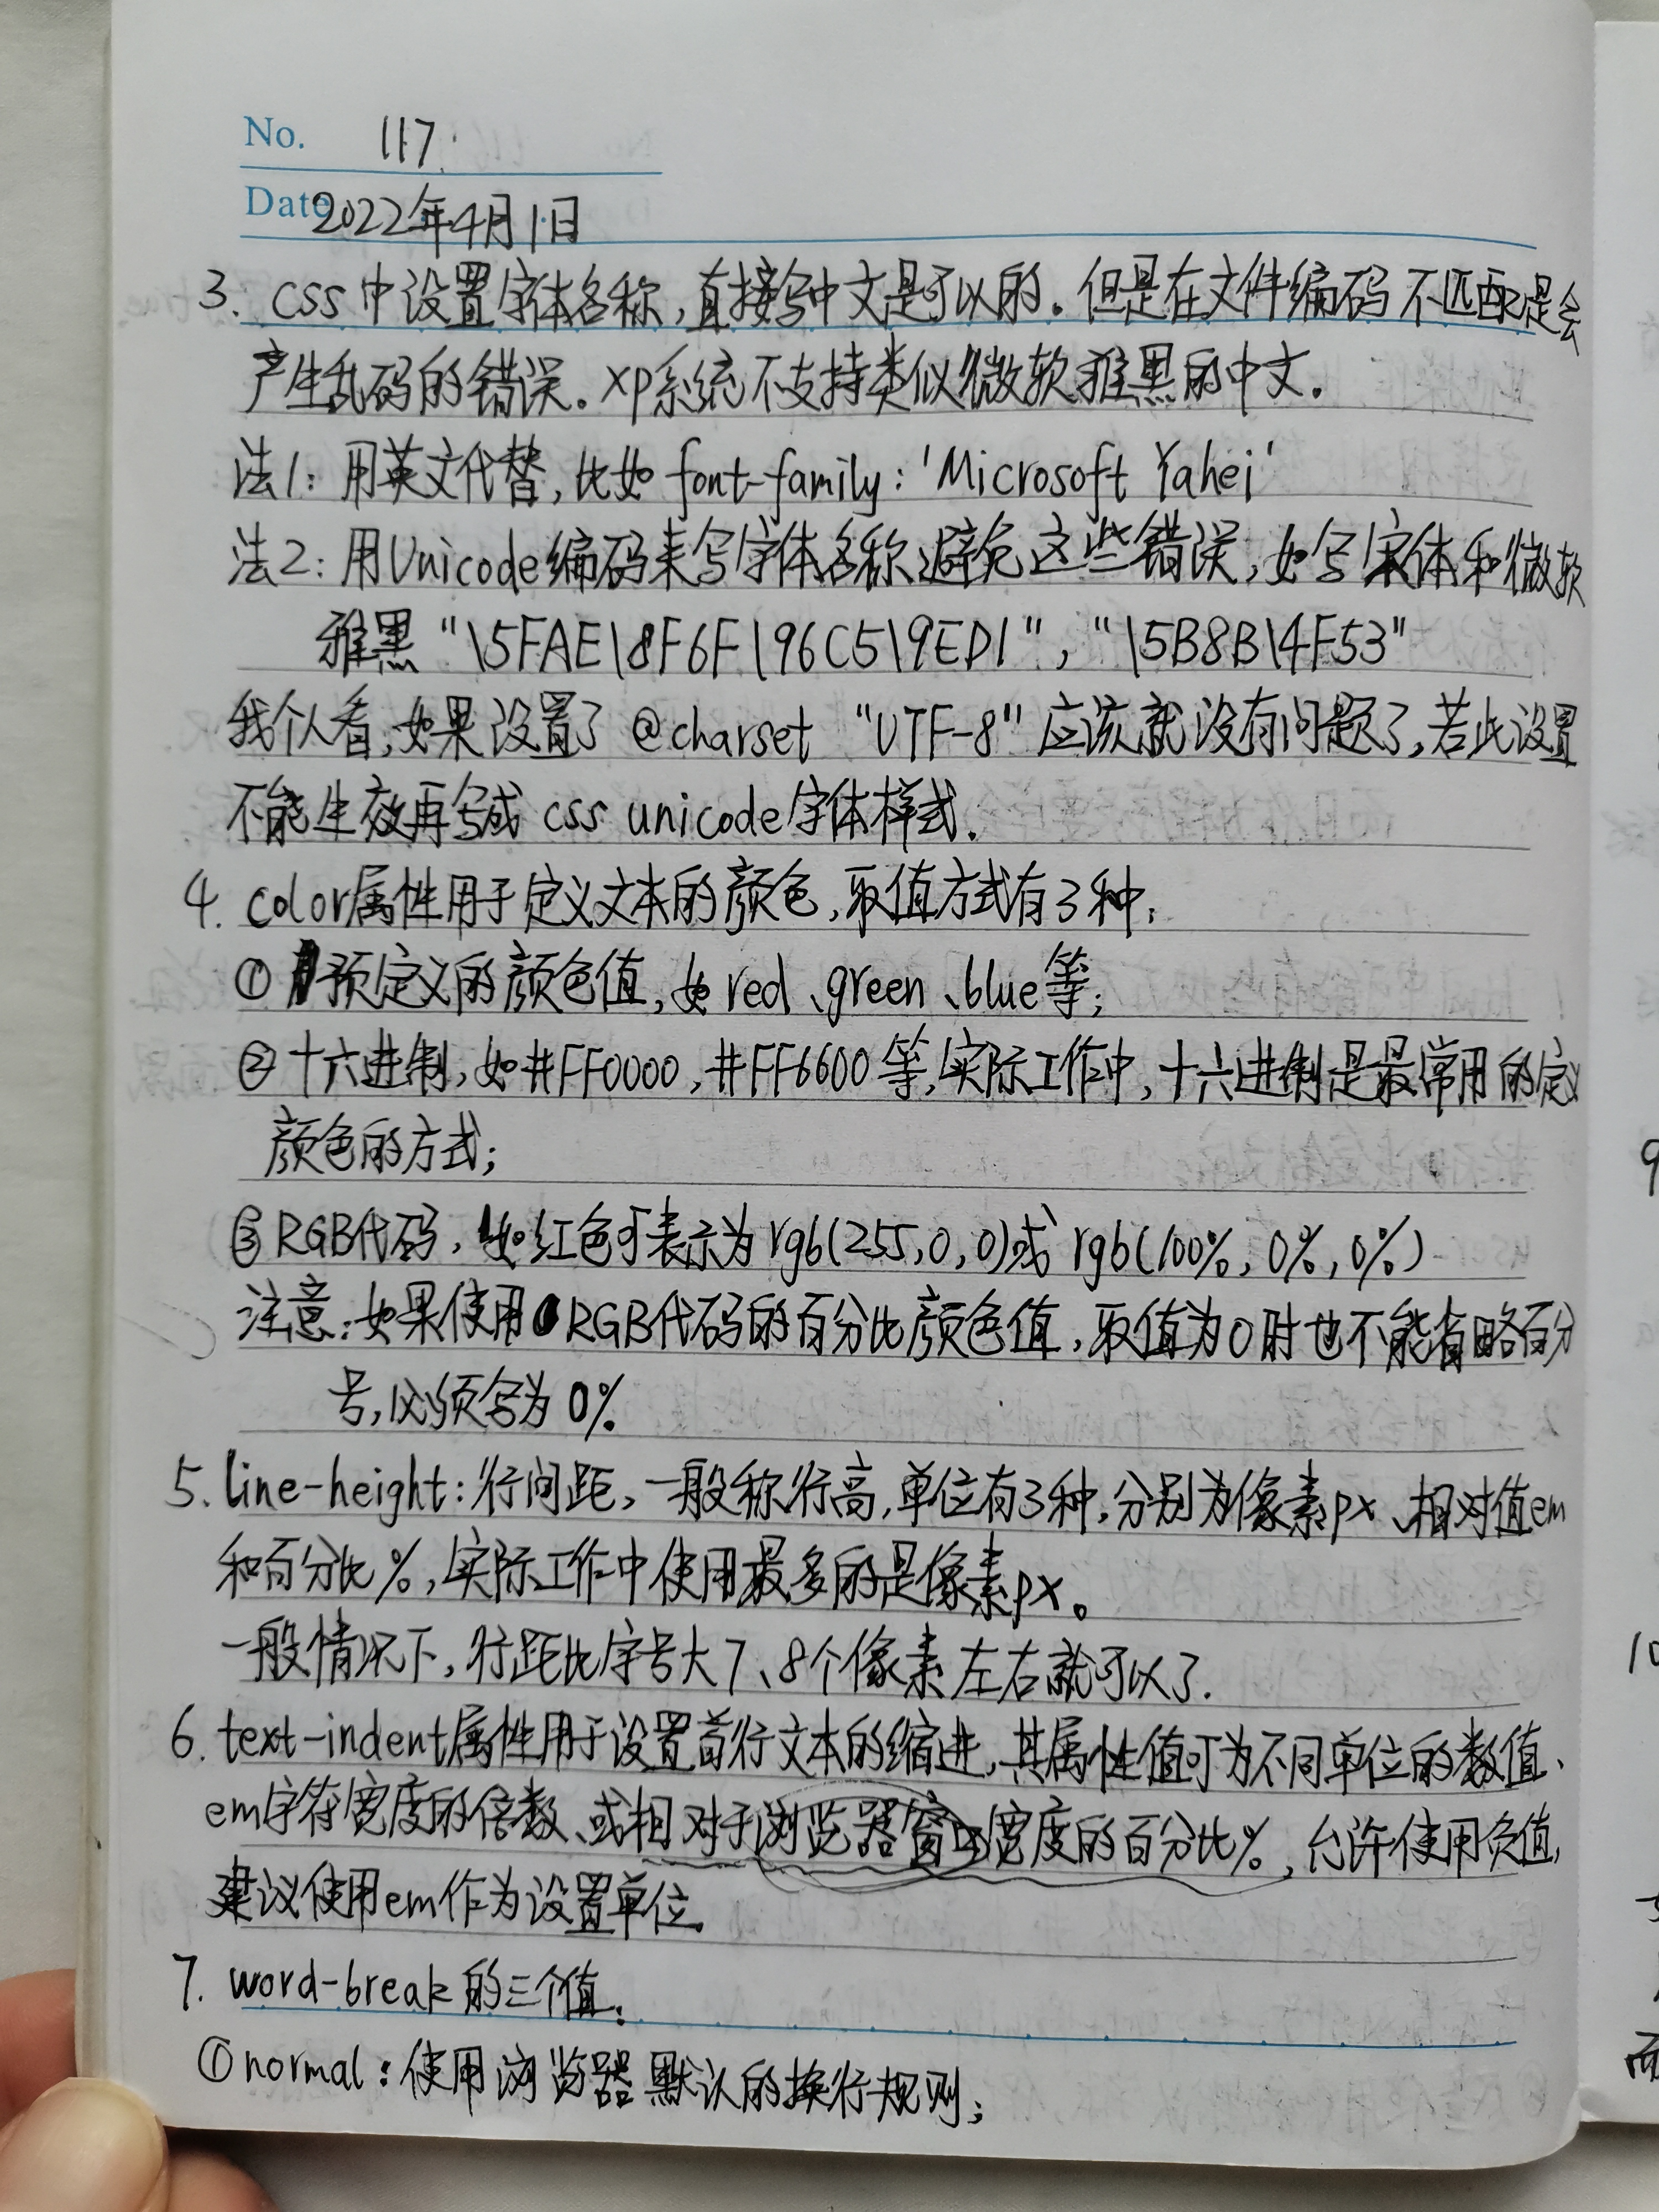 No. 117
Date 2022年4月1日
3. css中设置字体名称,直接写中文是可以的。但是在文件编码不匹配是会
产生乱码的错误。xp系统不支持类似微软雅黑的中文.
法1: 用英文代替,比如 font-family: 'Microsoft Yahei'
法2: 用Unicode编码来写字体名称避免这些错误,如写宋体和微软
雅黑 "\5FAE\8F6F\96C5\9ED1", "\5B8B\4F53"
我个人看,如果设置了 @charset "UTF-8" 应该就没有问题了,若此设置
不能生效再写成 css unicode字体样式.
4. color属性用于定义文本的颜色,取值方式有3种:
① 预定义的颜色值,如red、green、blue等;
② 十六进制,如#FF0000,#FF6600等,实际工作中,十六进制是最常用的定义
颜色的方式;
③ RGB代码,如红色可表示为rgb(255,0,0)或rgb(100%,0%,0%)
注意:如果使用RGB代码的百分比颜色值,取值为0时也不能省略百分
号,必须写为0%
5. line-height: 行间距,一般称行高,单位有3种,分别为像素px、相对值em
和百分比%,实际工作中使用最多的是像素px。
一般情况下,行距比字号大7、8个像素左右就可以了.
6. text-indent属性用于设置首行文本的缩进,其属性值可为不同单位的数值、
em字符宽度的倍数、或相对于浏览器窗口宽度的百分比%,允许使用负值,
建议使用em作为设置单位.
7. word-break的三个值:
①normal:使用浏览器默认的换行规则;
9
10